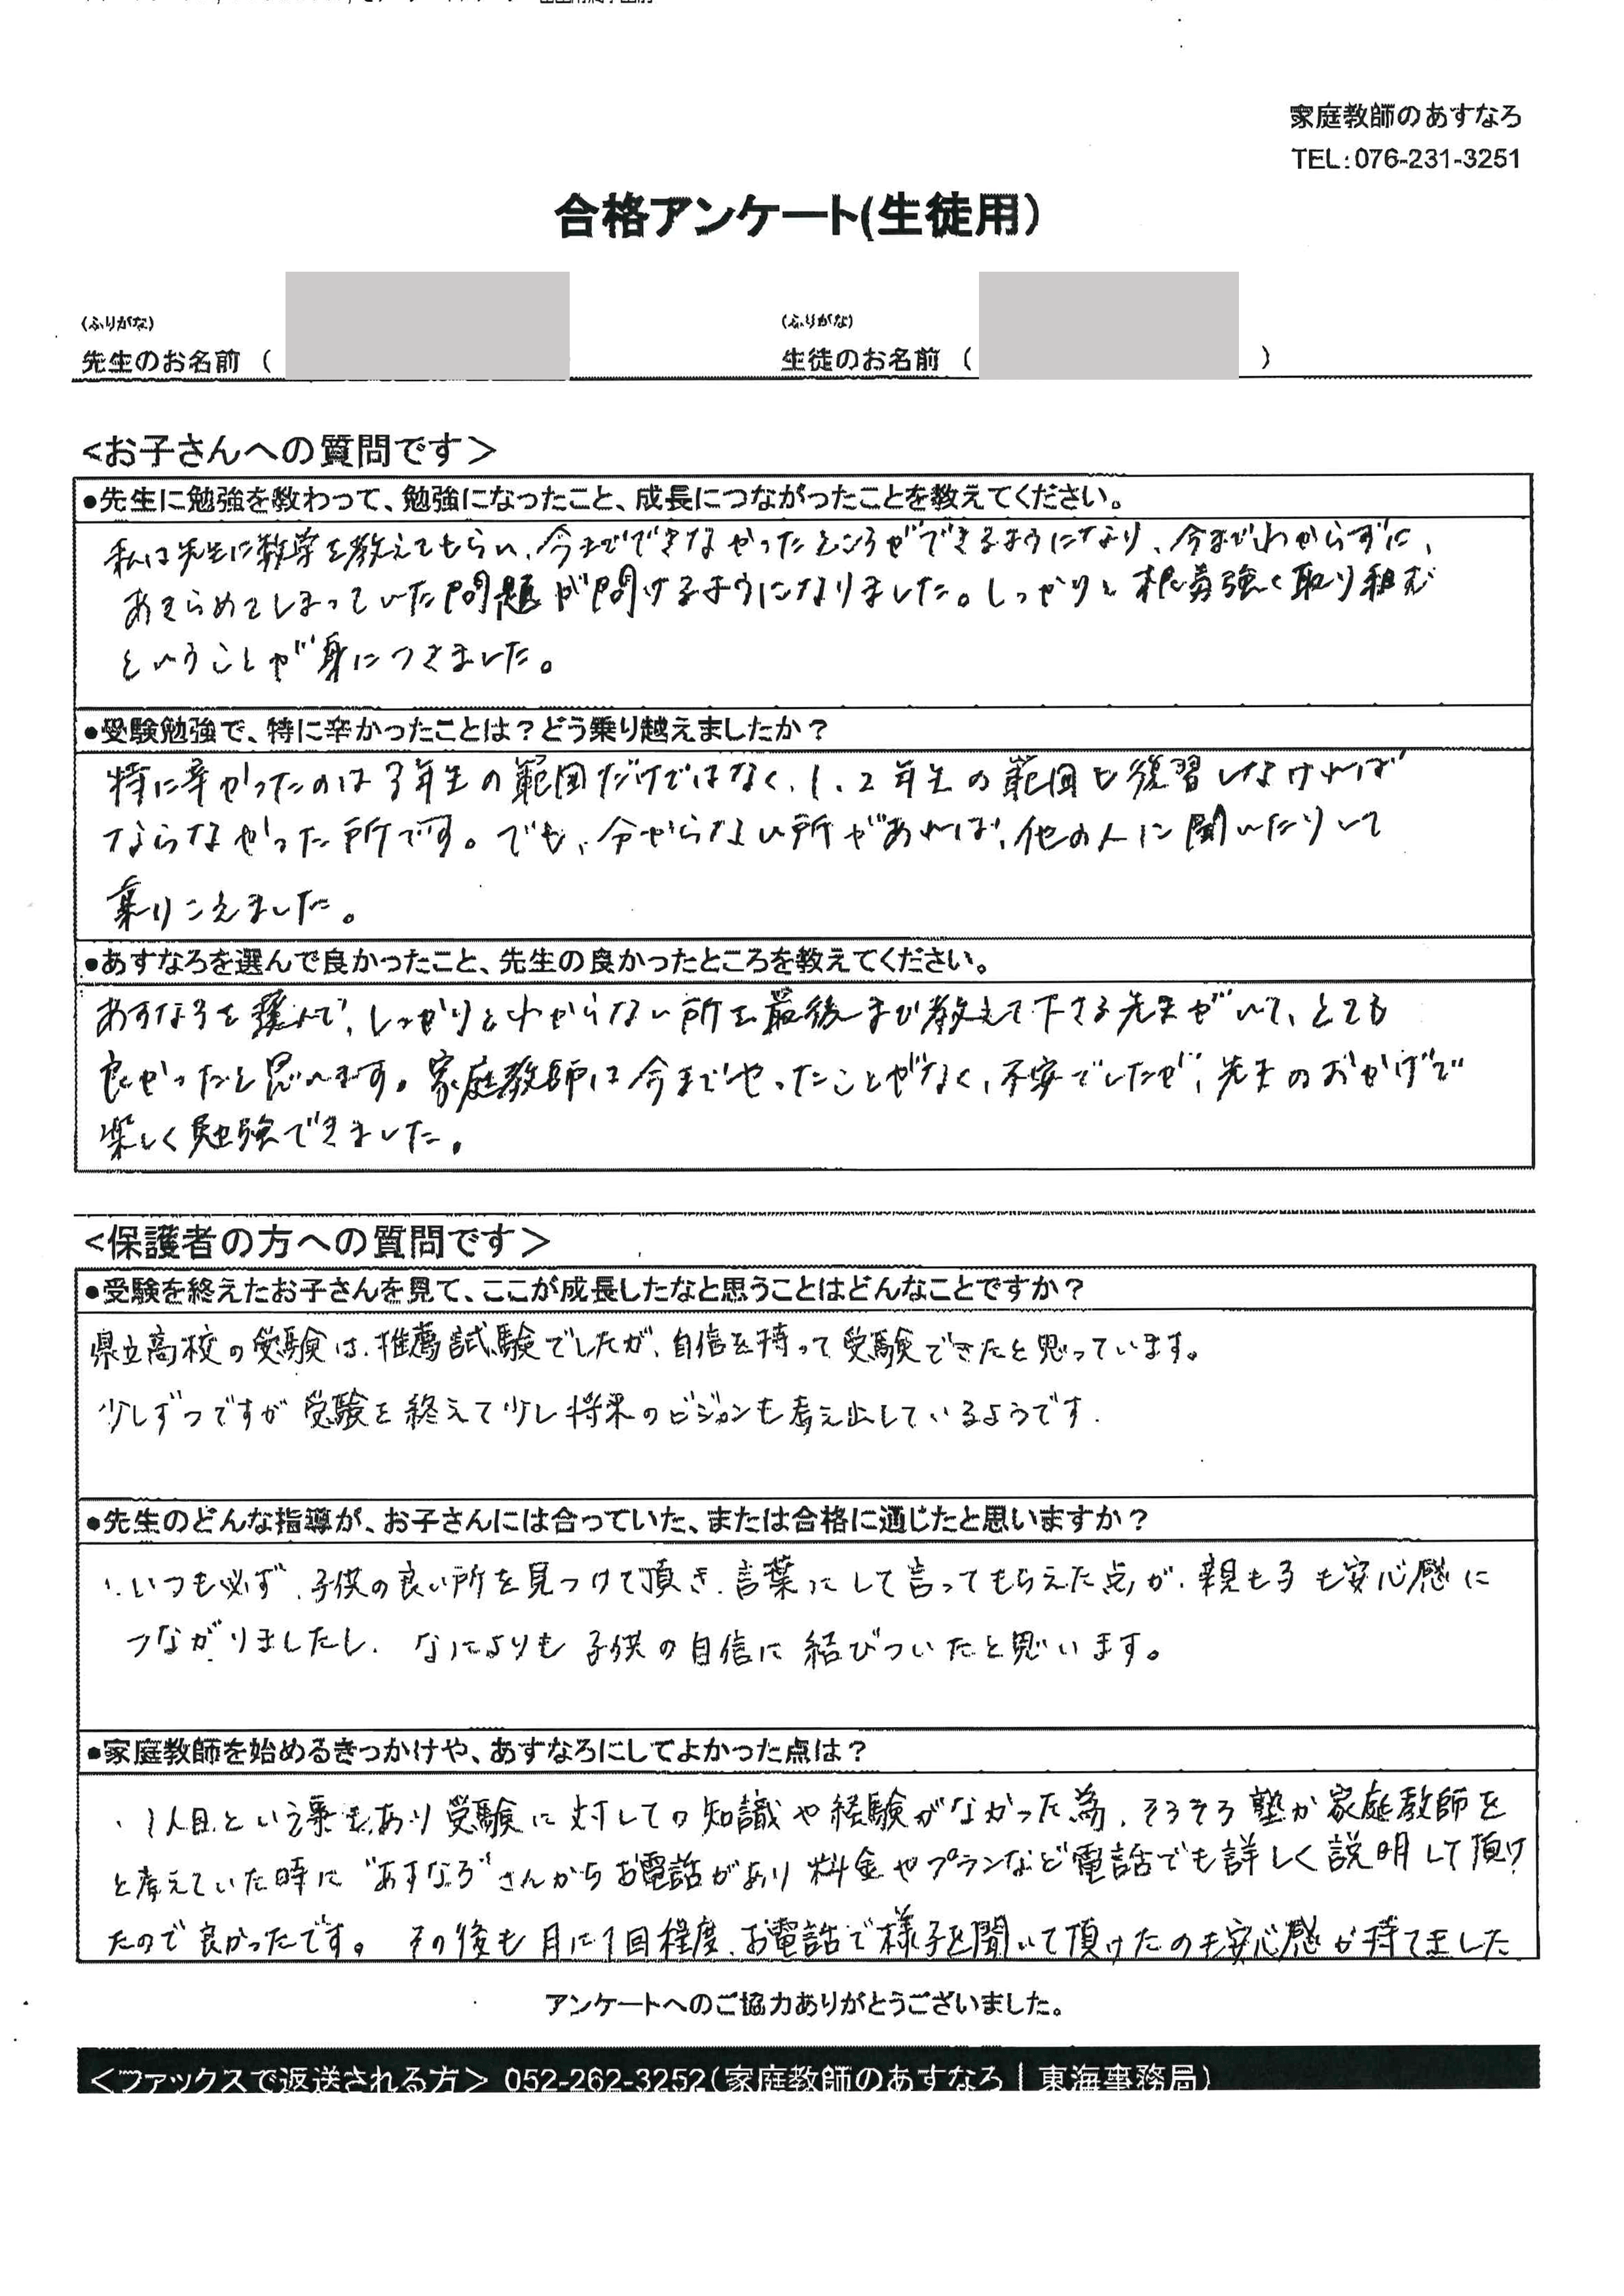 家庭教師のあすなろ
TEL:076-231-3251
合格アンケート(生徒用)
(ふりがな) (ふりがな)
先生のお名前 ( 生徒のお名前 ( )
<お子さんへの質問です>
●先生に勉強を教わって、勉強になったこと、成長につながったことを教えてください。
私は先生に数学を教えてもらい、今までできなかったところができるようになり、今までわからずに、
あきらめてしまっていた問題が問けるようになりました。しっかりと根気強く取り組む
ということが身につきました。
●受験勉強で、特に辛かったことは?どう乗り越えましたか?
特に辛かったのは3年生の範囲だけではなく、1、2年生の範囲も復習しなければ
ならなかった所です。でも、分からない所があれば、他の人に聞いたりして
乗りこえました。
●あすなろを選んで良かったこと、先生の良かったところを教えてください。
あすなろを選んで、しっかりとわからない所を最後まで教えて下さる先生がいて、とても
良かったと思います。家庭教師は今までやったことがなく、不安でしたが、先生のおかげで
楽しく勉強できました。
<保護者の方への質問です>
●受験を終えたお子さんを見て、ここが成長したなと思うことはどんなことですか?
県立高校の受験は、推薦試験でしたが、自信を持って受験できたと思っています。
少しずつですが受験を終えて少し将来のビジョンも考え出しているようです.
●先生のどんな指導が、お子さんには合っていた、または合格に通じたと思いますか?
・いつも必ず、子供の良い所を見つけて頂き、言葉にして言ってもらえた点が、親も子も安心感に
つながりましたし、なによりも子供の自信に結びついたと思います。
●家庭教師を始めるきっかけや、あすなろにしてよかった点は?
・1人目という事もあり受験に対しての知識や経験がなかった為、そろそろ塾か家庭教師を
と考えていた時に"あすなろ"さんからお電話があり料金やプランなど電話でも詳しく説明して頂け
たので良かったです。その後も月に1回程度、お電話で様子を聞いて頂けたのも安心感が持てました
アンケートへのご協力ありがとうございました。
<ファックスで返送される方> 052-262-3252(家庭教師のあすなろ|東海事務局)